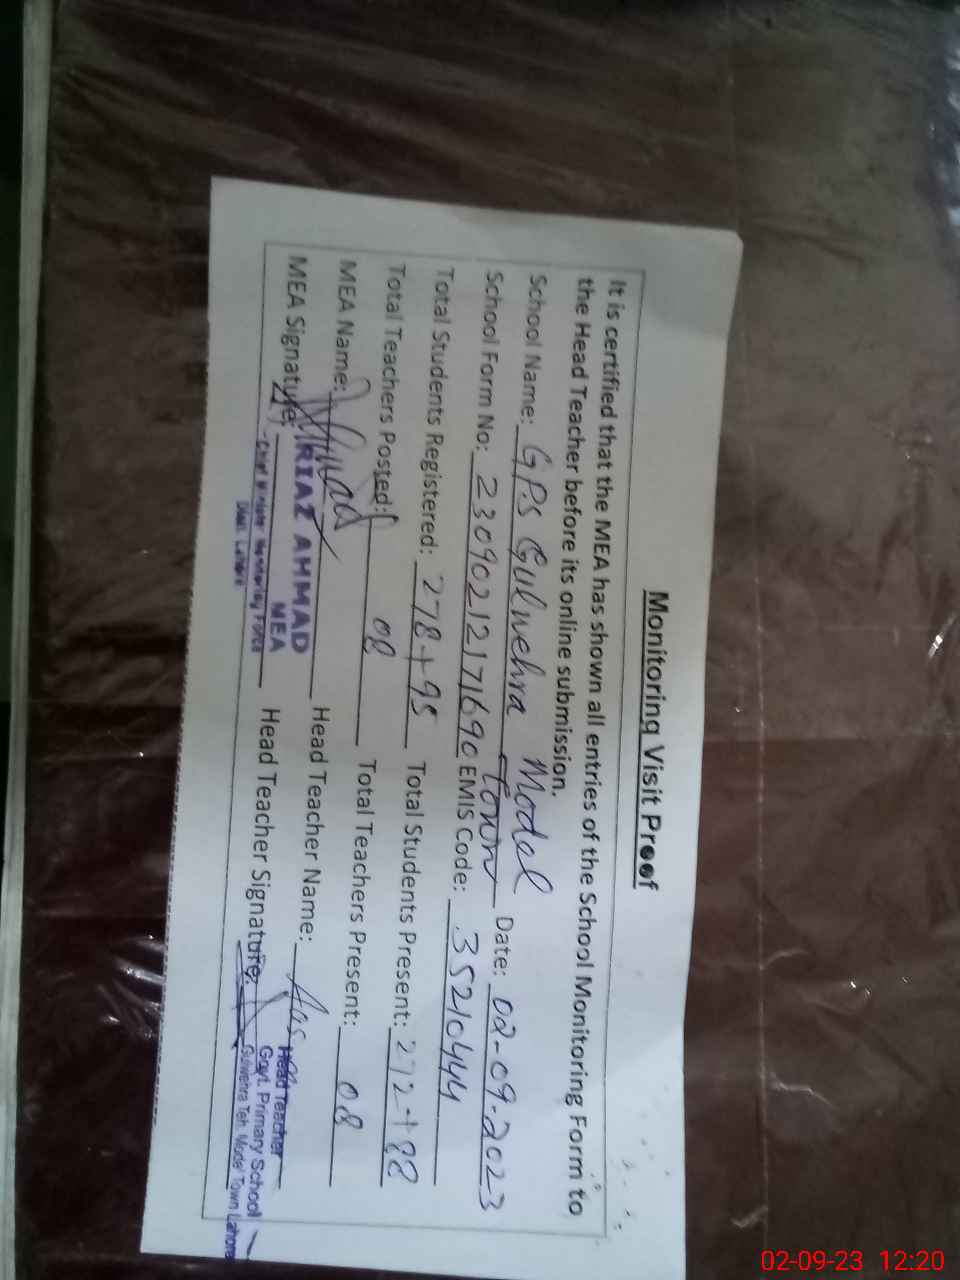 Monitoring Visit Proof
It is certified that the MEA has shown all entries of the School Monitoring Form to
the Head Teacher before its online submission.
School Name: GPS Gulwehra Model Town Date: 02-09-2023
School Form No: 23090212171690 EMIS Code: 35210444
Total Students Registered: 278+95 Total Students Present: 272+88
Total Teachers Posted: 08 Total Teachers Present: 08
MEA Name: Head Teacher Name:
MEA Signature: Head Teacher Signature:
RIAZ AHMAD
MEA
Chief Minister Monitoring Force
Distt. Lahore
Head Teacher
Govt. Primary School
Gulwehra Teh. Model Town Lahore
02-09-23 12:20